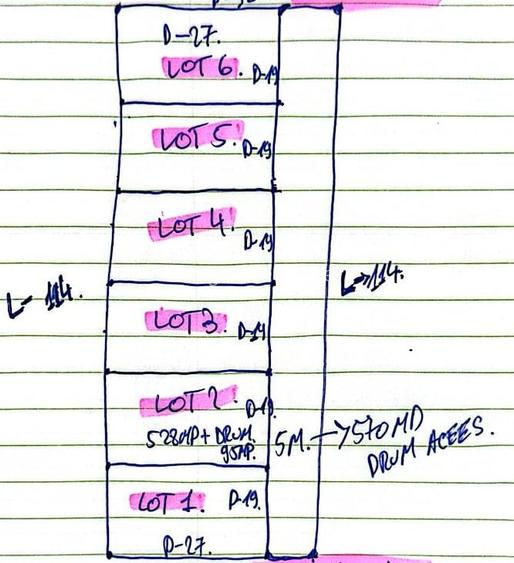 D-27.
LOT 6. D-19
LOT 5. D-19
LOT 4. D-19
L- 114.
L→114.
LOT 3. D-19
LOT 2 D-19.
528MP + DRUM.
95MP.
5M. → 570MD
DRUM ACEES.
LOT 1. D-19.
D-27.